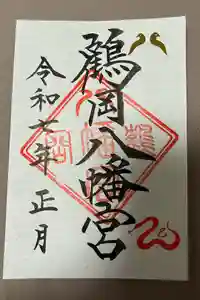 鶴岡八幡宮
令和七年
正月